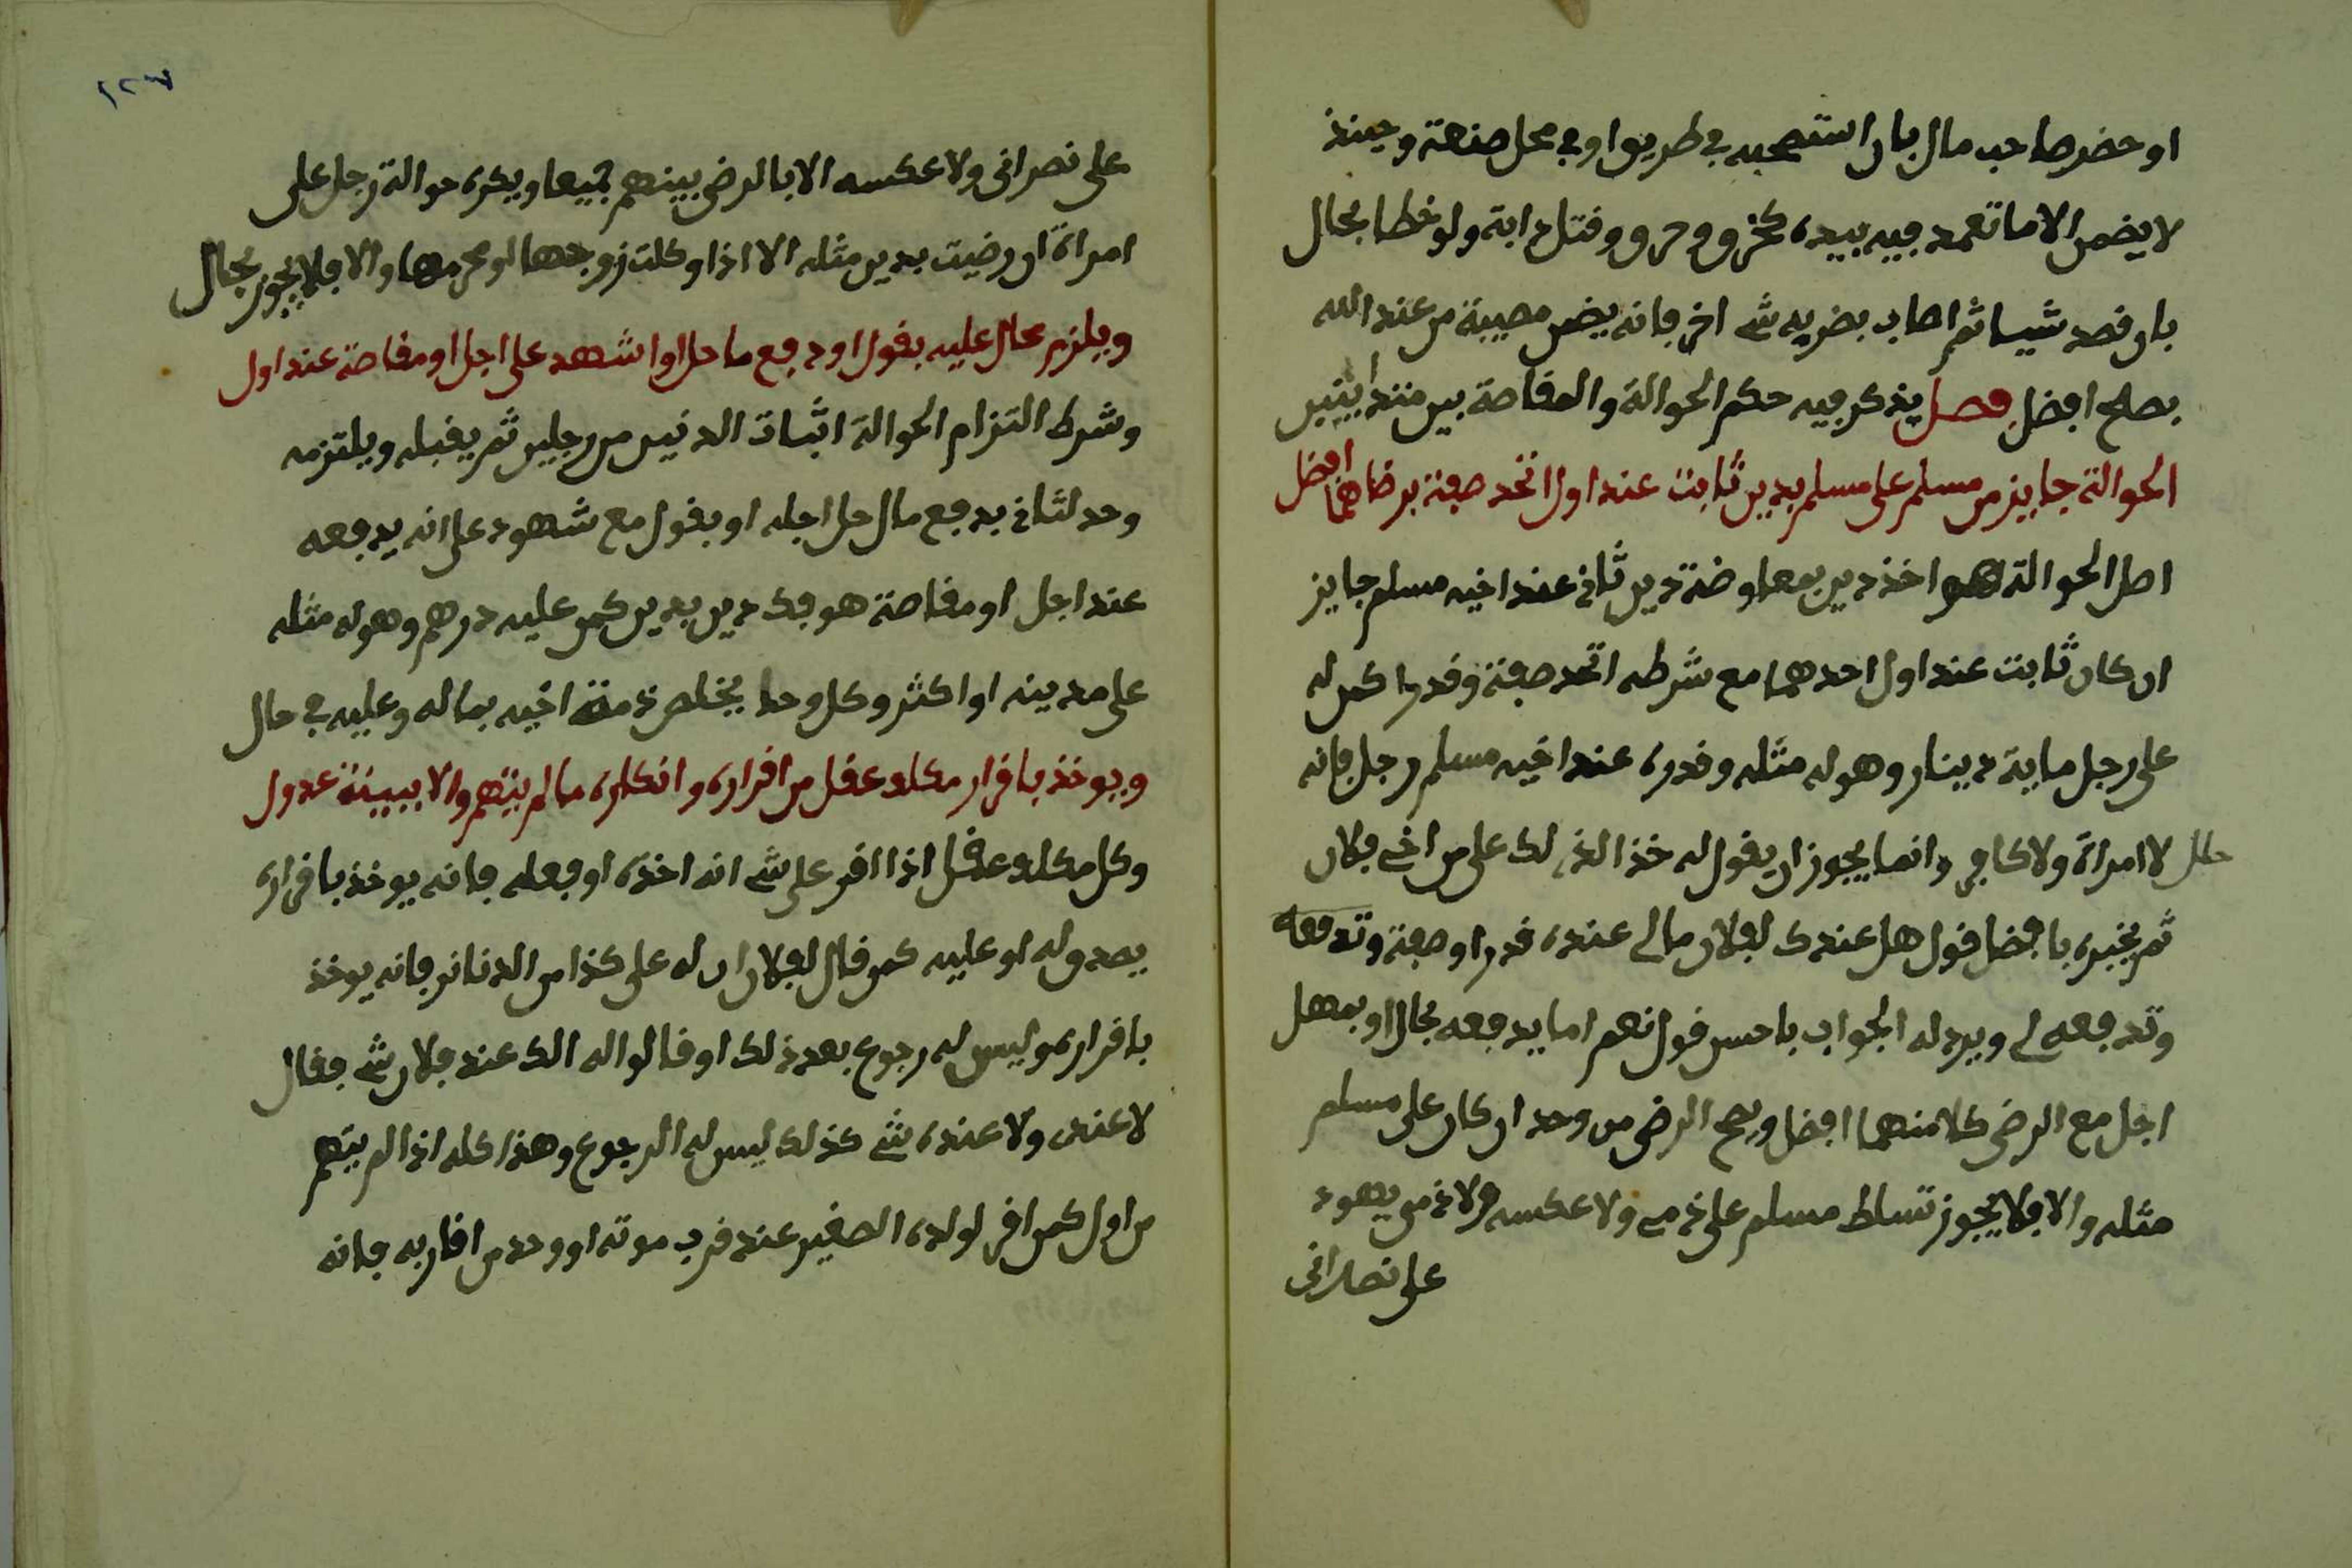 او حضر صاحب مال بان استصحبه في طريق او في محل صنعة وحينئذ
لا يضمن الا ما تعمد فيه بيده كخرق وحرق وقتل دابة ولو خطا بحال
بان قصد شيا ثم اصاب بضربه شي اخر فانه يضمن مصيبة من عند الله
بصلح افضل فصل يذكر فيه حكم الحوالة والمقاصة بين متداينين
الحوالة جايز من مسلم على مسلم بدين ثابت عند اول اتحد صفة برضاهما افضل
اصل الحوالة هو اخذ دين بمعاوضة دين ثاني عند اخيه مسلم جايز
ان كان ثابت عند اول احدهما مع شرطه اتحد صفة وقدرا كمن له
على رجل ماية دينار وهو له مثله وقدره عند اخيه مسلم رجل فانه
حلل لا امراة ولا كافر وانما يجوز ان يقول له خذ الذي لك علي من اخي فلان
ثم يخبره بافضل قول هل عندك لفلان مالي عنده قدرا وصفة وتدفعه
وتدفعه لي ويرد له الجواب باحسن قول نعم اما يدفعه بحال او بمهل
اجل مع الرضى كلا منهما افضل ويصح الرضى من وحد ان كان على مسلم
مثله والا فلا يجوز تسلط مسلم على ذمي ولا عكسه ولا ذمي يهود
على نصراني
١٢٣
على نصرانى ولا عكسه الا بالرضى بينهم جميعا ويكره حوالة رجل على
امراة ان رضيت بدين مثله الا اذا وكلت زوجها او محرمها والا فلا يجوز بحال
ويلزم محال عليه بقول او دفع ما حل او اشهد على اجل او مقاصة عند اول
وشرط التزام الحوالة اثبات الدنين من رجلين ثم يقبله ويلتزمه
وحد لثاني يدفع مال حل اجله او يقول مع شهود على انه يدفعه
عند اجل او مقاصة هو فك دين بدين كمن عليه درهم وهو له مثله
على مدينه او اكثر وكل وحد يخلص ذمة اخيه بماله وعليه في حال
ويوخذ باقرار مكلف عقل من اقراره وانكاره ما لم يتهم والا ببينة عدول
وكل مكلف عقل اذا اقر على شي انه اخذه او فعله فانه يوخذ باقراره
يصدق له او عليه كمن قال لفلان ان له علي كذا من الدنانر فانه يوخذ
باقراره وليس له رجوع بعد ذلك او قالوا له الك عند فلان شي فقال
لا عندى ولا عنده شي كذلك ليس له الرجوع وهذا كله اذا لم يتهم
من اول كمن اقر لولده الصغير عند قرب موته او وحد من اقاربه فانه